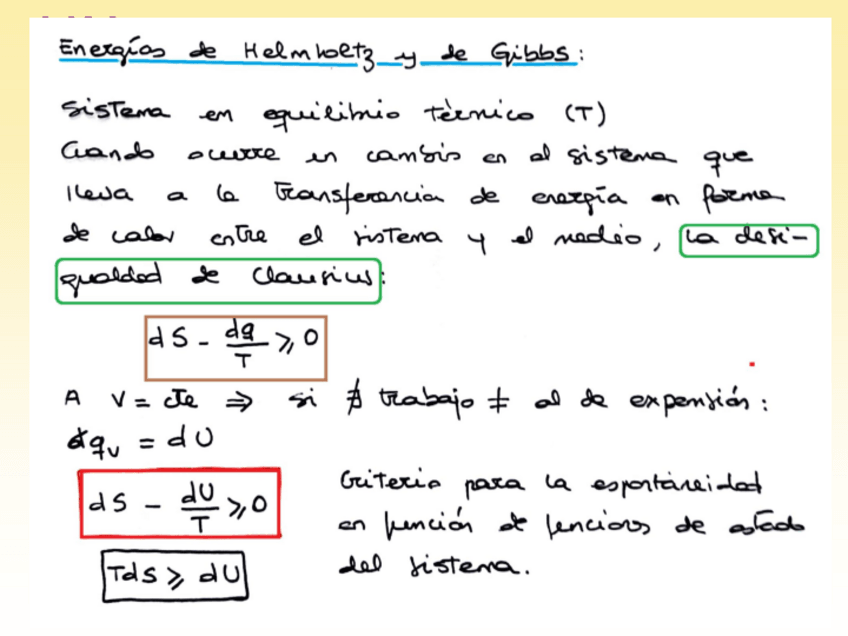 Energías de Helmholtz y de Gibbs:
Sistema en equilibrio tèrmico (T)
Cuando ocurre un cambio en el sistema que
lleva a la transferencia de energía en forma
de calor entre el sistema y el medio, la desi-
gualdad de Clausius:
dS - dq/T ⩾ 0
A V = cte ⇒ si ∄ trabajo ≠ al de expansión:
đq_V = dU
dS - dU/T ⩾ 0
Criterio para la espontaneidad
en función de funciones de estado
TdS ⩾ dU
del sistema.